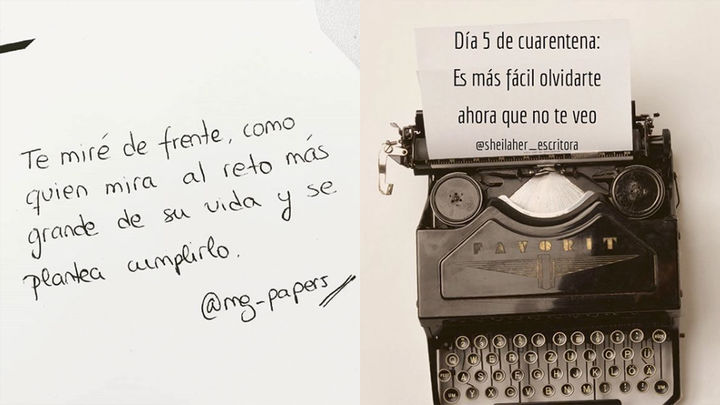 Te miré de frente, como
quien mira al reto más
grande de su vida y se
plantea cumplirlo.
@mg-papers
Día 5 de cuarentena:
Es más fácil olvidarte
ahora que no te veo
@sheilaher_escritora
FAVORIT